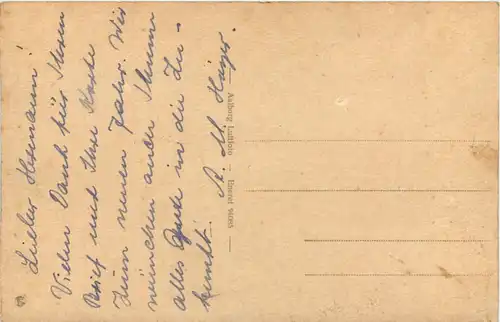 Lieber Hermann!
Vielen Dank für Ihren
Brief und Ihre Karte
zum neuen Jahr. Wir
wünschen auch Ihnen
alles Gute in die Zu-
kunft.
Aalborg Luftfoto — Eneret